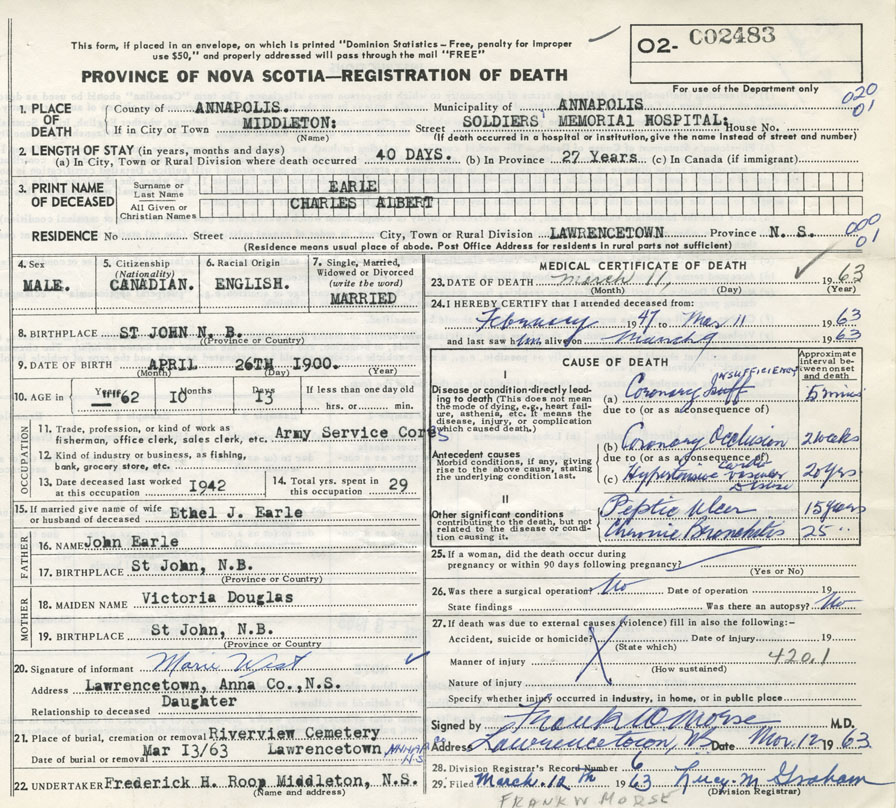 This form, if placed in an envelope, on which is printed "Dominion Statistics—Free, penalty for improper
use $50," and properly addressed will pass through the mail "FREE"
O2- C02483
PROVINCE OF NOVA SCOTIA—REGISTRATION OF DEATH
For use of the Department only
020
01
1. PLACE OF DEATH
County of ANNAPOLIS. Municipality of ANNAPOLIS
If in City or Town MIDDLETON: Street SOLDIERS' MEMORIAL HOSPITAL; House No.
(Name) (If death occurred in a hospital or institution, give the name instead of street and number)
2. LENGTH OF STAY (in years, months and days)
(a) In City, Town or Rural Division where death occurred 40 DAYS. (b) In Province 27 Years (c) In Canada (if immigrant)
3. PRINT NAME OF DECEASED
Surname or Last Name EARLE
All Given or Christian Names CHARLES ALBERT
RESIDENCE No Street City, Town or Rural Division LAWRENCETOWN Province N. S.
000
01
(Residence means usual place of abode. Post Office Address for residents in rural parts not sufficient)
4. Sex
MALE.
5. Citizenship
(Nationality)
CANADIAN.
6. Racial Origin
ENGLISH.
7. Single, Married,
Widowed or Divorced
(write the word)
MARRIED
8. BIRTHPLACE ST JOHN N. B.
(Province or Country)
9. DATE OF BIRTH APRIL 26TH 1900.
(Month) (Day) (Year)
10. AGE in 62 Months 10 Days 13 If less than one day old
hrs. or min.
OCCUPATION
11. Trade, profession, or kind of work as
fisherman, office clerk, sales clerk, etc. Army Service Corps
12. Kind of industry or business, as fishing,
bank, grocery store, etc.
13. Date deceased last worked
at this occupation 1942
14. Total yrs. spent in
this occupation 29
15. If married give name of wife
or husband of deceased Ethel J. Earle
FATHER
16. NAME John Earle
17. BIRTHPLACE St John, N.B.
(Province or Country)
MOTHER
18. MAIDEN NAME Victoria Douglas
19. BIRTHPLACE St John, N.B.
(Province or Country
20. Signature of informant Marie West
Address Lawrencetown, Anna Co.,N.S.
Relationship to deceased Daughter
21. Place of burial, cremation or removal Riverview Cemetery
Date of burial or removal Mar I3/63 Lawrencetown
22. UNDERTAKER Frederick H. Roop Middleton, N.S.
(Name and address)
MEDICAL CERTIFICATE OF DEATH
23. DATE OF DEATH March 11, 1963
(Month) (Day) (Year)
24. I HEREBY CERTIFY that I attended deceased from:
February 1947 to Mar 11 1963
and last saw him alive on March 9 1963
CAUSE OF DEATH
Approximate
interval be-
tween onset
and death
I
Disease or condition directly lead-
ing to death (This does not mean
the mode of dying, e.g., heart fail-
ure, asthenia, etc. It means the
disease, injury, or complication
which caused death.)
(a) Coronary Insuff INSUFFICIENCY 5 mins
due to (or as a consequence of)
Antecedent causes
Morbid conditions, if any, giving
rise to the above cause, stating
the underlying condition last.
(b) Coronary Occlusion 2 weeks
due to (or as a consequence of)
(c) Hypertensive Cardio vascular Disease 20 yrs
II
Other significant conditions
contributing to the death, but not
related to the disease or condi-
tion causing it.
Peptic Ulcer 15 years
Chronic Bronchitis 25 "
25. If a woman, did the death occur during
pregnancy or within 90 days following pregnancy?
(Yes or No)
26. Was there a surgical operation? No Date of operation 19
State findings Was there an autopsy? No
27. If death was due to external causes (violence) fill in also the following:-
Accident, suicide or homicide? Date of injury 19
(State which)
Manner of injury 420.1
(How sustained)
Nature of injury
Specify whether injury occurred in industry, in home, or in public place
Signed by Frank W Morse M.D.
Address Lawrencetown, NS Date Mar. 12 1963
28. Division Registrar's Record Number 6
29. Filed March 12th 1963 Lucy M Graham
(Division Registrar)
FRANK W MORSE